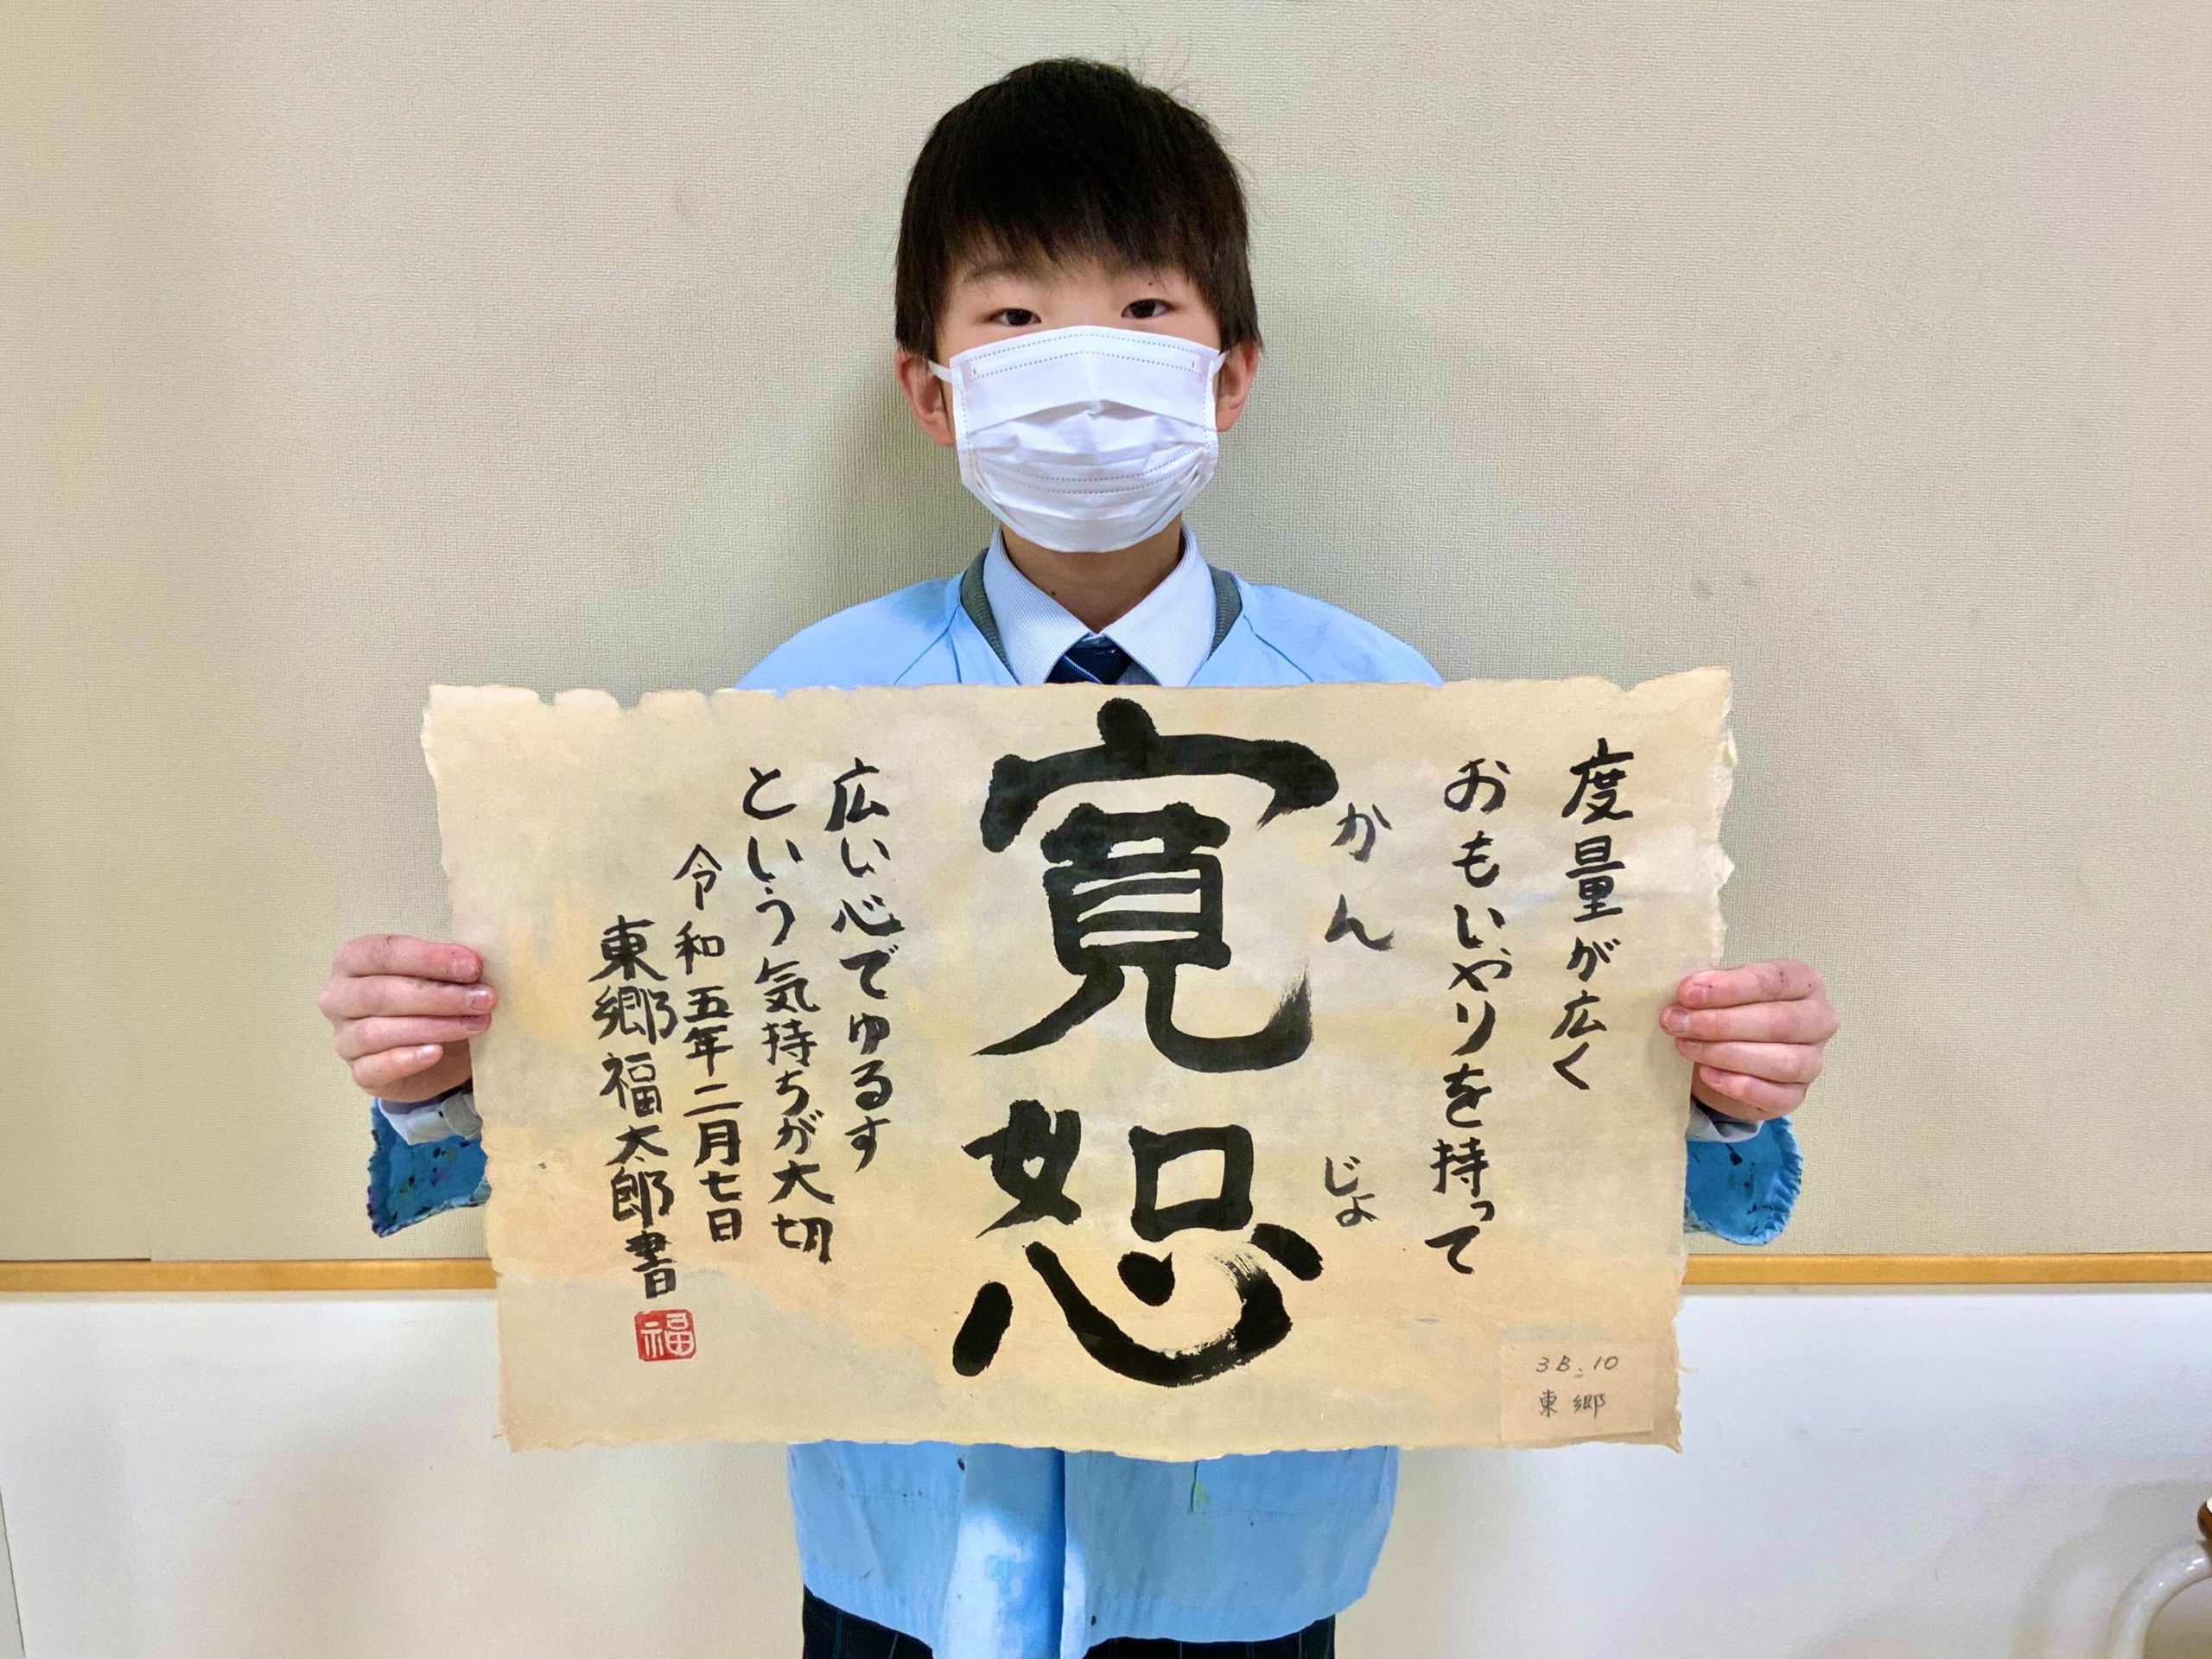 度量が広く
おもいやりを持って
かんじょ
寛恕
広い心でゆるす
という気持ちが大切
令和五年二月七日
東郷福太郎書
福
3B.10
東郷